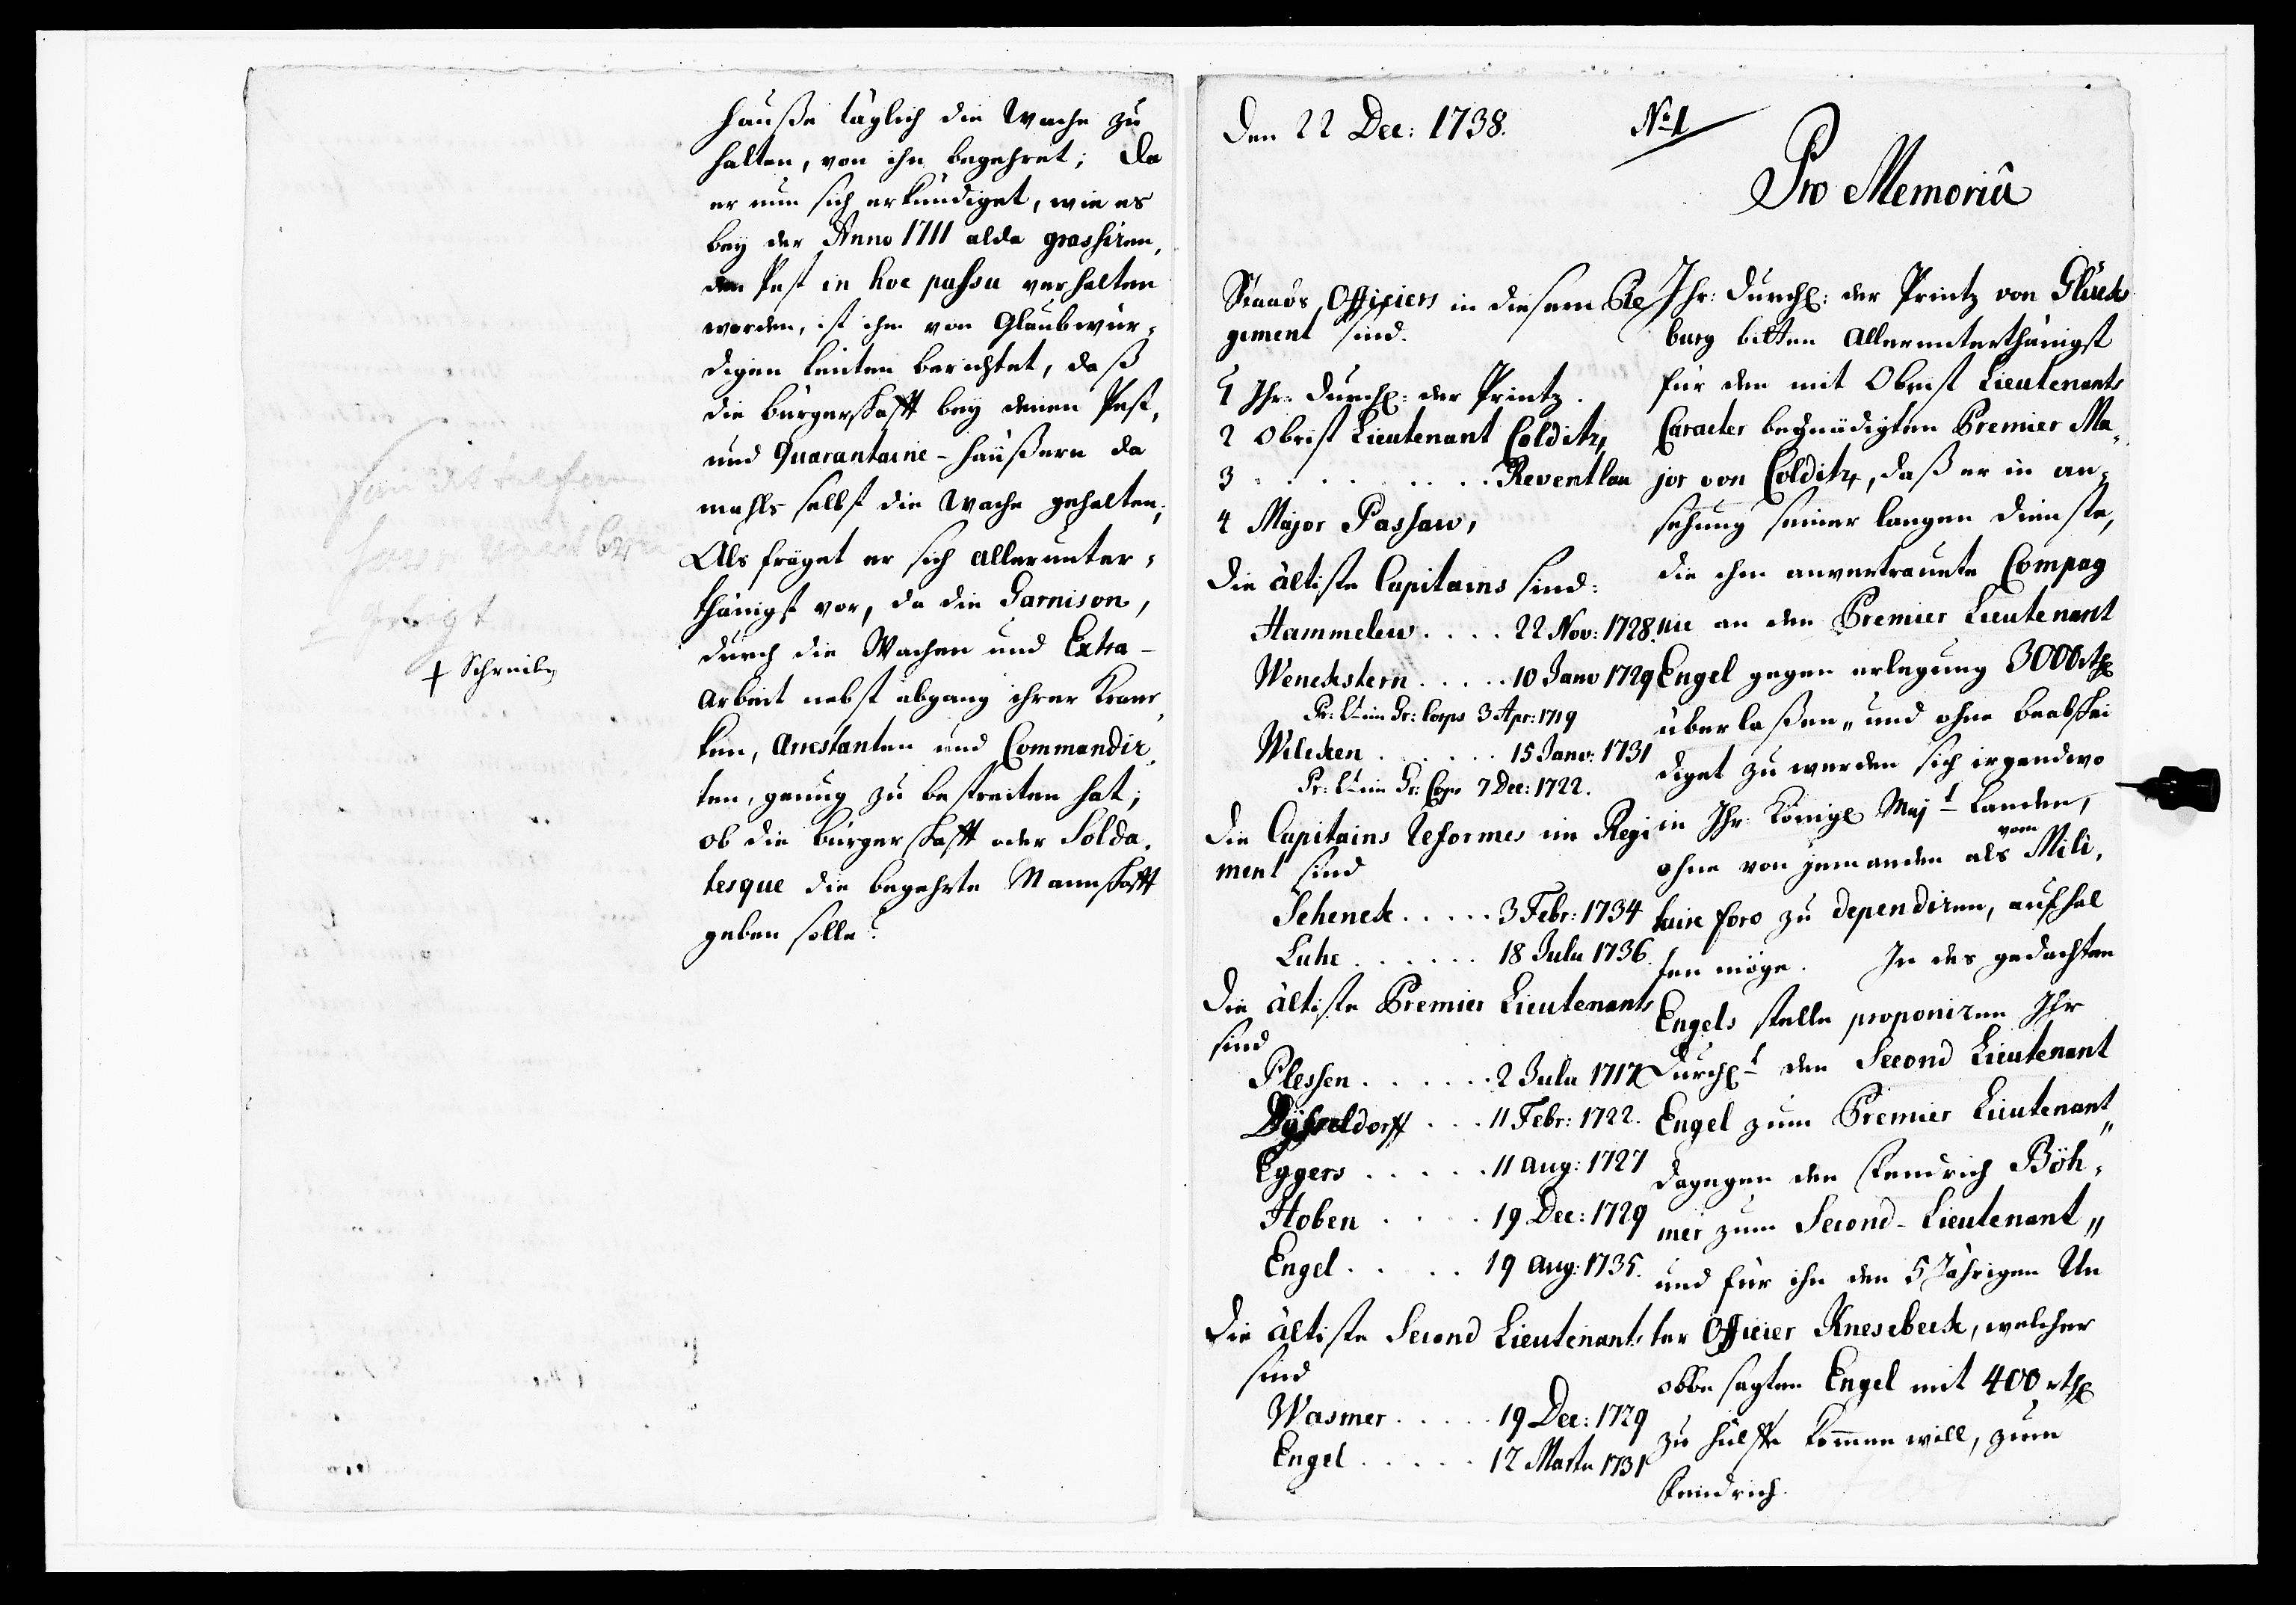 hauße täglich die Wache zu
halten, von ihn begehret; da
er nun sich erkundiget, wie es
bey der Anno 1711 alda grassiren,
den Pest in hoc passu verhalten
worden, ist ihm von Glaubwür-
digen Leuten berichtet, daß
die bürgerschafft bey denen Pest,
und Quarantaine-häußern da
mahls selbst die Wache gehalten;
Als fräget er sich allerunter-
thänigst vor, da die Garnison,
durch die Wachen und Extra-
arbeit nebst abgang ihrer Kran-
ken, Arrestanten und Commandir-
ten, genug zu bestreiten hat;
ob die bürgerschafft oder Solda-
tesque die begehrte Mannschafft
geben solle?
Den 22 Dec: 1738.
No 1
Pro Memoriâ
Staabs Officiers in diesem Re
giment sind.
1 Ihr: Durchl: der Printz.
2 Obrist Lieutenant Colditz,
3 . . . . . . . . Reventlau
4 Major Passaw,
Die ältiste Capitains sind:
Hammelew . . . . 22 Nov: 1728.
Wenckstern . . . . . 10 Janv 1729
Pr: Lt im Gr: Corps 3 Apr: 1719
Wilcken . . . . . . 15 Janv: 1731
Pr: Lt im Gr: Corps 7 Dec: 1722.
Die Capitains Reformes im Regi
ment sind
Schenck . . . . . 3 Febr: 1734
Luhe . . . . . . 18 Julii 1736.
Die ältiste Premier Lieutenants
sind
Plessen . . . . . . 2 Julii 1717
. . . 11 Febr: 1722.
Eggers . . . . . 11 Aug: 1727
Hoben . . . . 19 Dec: 1729
Engel . . . . . 19 Aug: 1735.
Die ältiste Second Lieutenants
sind
Wasmer . . . . . 19 Dec: 1729
Engel . . . . . 12 Martii 1731
Ihr: Durchl: der Printz von Glücks
burg bitten Allerunterthänigst
für den mit Obrist Lieutenants
Caracter begnädigten Premier Ma-
jor von Colditz, daß er in an-
sehung seiner langen Dienste,
die ihm anvertrauete Compag
nie an den Premier Lieutenant
Engel gegen erlegung 3000 rthl
überlaßen, und ohne beabschei
diget zu werden sich irgendwo
in Ihr Königl Majt Landen,
ohne von jemanden als vom Mili-
taire foro zu dependiren, aufhal
ten möge. In des gedachten
Engels stelle proponiren Ihr
Durchlt den Second Lieutenant
Engel zum Premier Lieutenant,,
dagegen den Fendrich Böh-
mer zum Second-Lieutenant,,
und für ihn den 5 Jährigen Un
ter Officier Knesebeck, welcher
obbesagten Engel mit 400 rthl
zu hülffe kommen will, zum
Fendrich.
† Schreiben